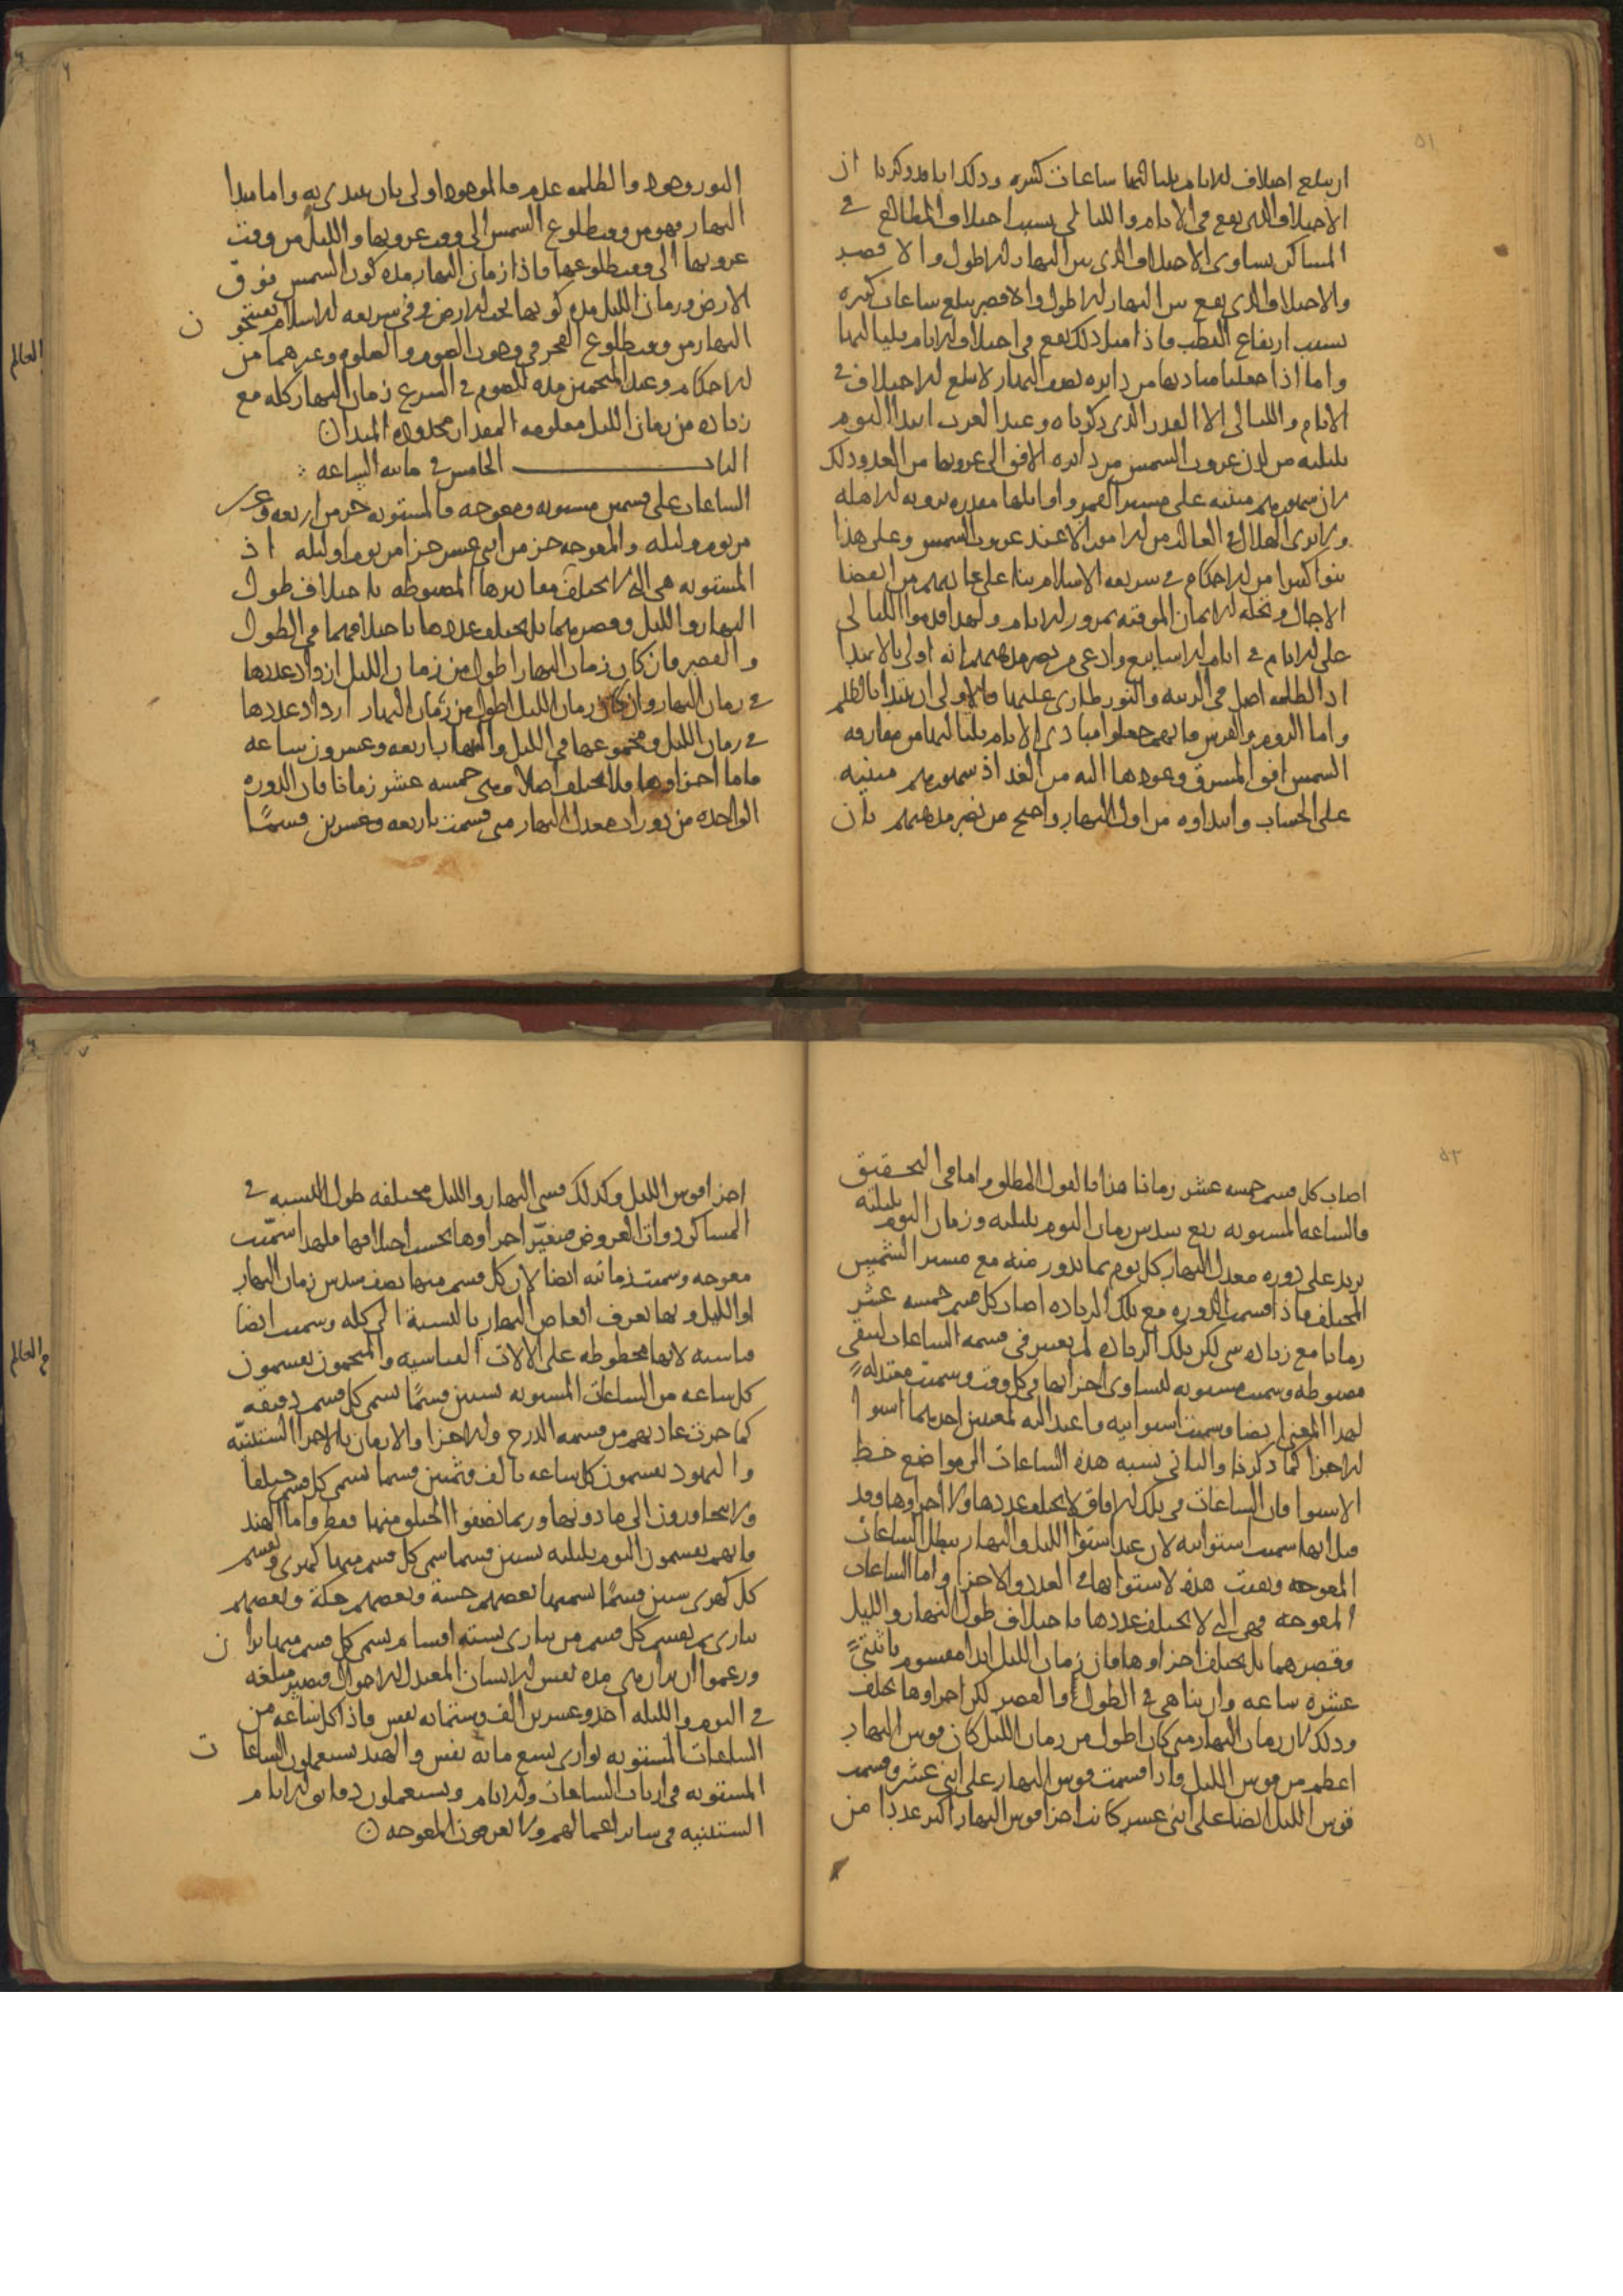 ان يبلغ اختلاف الايام بلياليها ساعات كثيره وذلك انا قد ذكرنا ان
الاختلاف الذي يقع في الايام والليالي بسبب اختلاف المطالع في
المساكن يساوي الاختلاف الذي بين النهار الاطول والاقصر
والاختلاف الذي يقع بين النهار الاطول والاقصر يبلغ ساعات كثيره
بسبب ارتفاع القطب فاذا مثل ذلك يقع في اختلاف الايام بلياليها
واما اذا جعلنا مباديها من دايره نصف النهار لا يبلغ الاختلاف في
الايام والليالي الا القدر الذي ذكرناه وعند العرب ابتدا اليوم
بليلته من لدن غروب الشمس من دايره الافق الى غروبها من الغد وذلك
لان شهورهم مبنيه على مسير القمر واوايلها مقدره برويه الاهله
ولا يرى الهلال في الغالب من الامور الا عند غروب الشمس وعلى هذا
بنوا كثيرا من الاحكام في شريعه الاسلام بنا على عاداتهم من انقضا
الاجال وتحله الايمان الموقته بمرور الايام ولهذا قدموا الليالي
على الايام في ايام الاسابيع وادعى من نصر مذهبهم انه اولى بالابتدا
اذ الظلمه اصل في الرتبه والنور طاري عليها فالاولى ان يبتدا بالظلم
واما الروم والفرس فانهم جعلوا مبادي الايام بلياليها من مفارقه
الشمس افق المشرق وعودها اليه من الغد اذ شهورهم مبنيه
على الحساب وابتداوه من اول النهار واحتج من نصر مذهبهم بان
النور وجود والظلمه عدم فالموجود اولى بان يبتدي به واما مبدا
النهار فهو من وقت طلوع الشمس الى وقت غروبها والليل من وقت
غروبها الى وقت طلوعها فاذا زمان النهار مده كون الشمس فوق
الارض وزمان الليل مده كونها تحت الارض وفي شريعه الاسلام يفتتحون
النهار من وقت طلوع الفجر في وجوب الصوم والصلوه وغيرهما من
الاحكام وعند المنجمين مده الصوم في الشرع زمان النهار كله مع
زياده من زمان الليل معلومه المقدار محدوده المبدا ن
الباب الخامس في مائيه الساعه
الساعات على قسمين مستويه ومعوجه فالمستويه جز من اربعه وعشرين
من يوم وليله والمعوجه جز من اثني عشر جزا من يوم او ليله اذ
المستويه هي التي لا يختلف مقاديرها المضبوطه باختلاف طول
النهار والليل وقصرهما بل يختلف عددها باختلافهما في الطول
والقصر فان كان زمان النهار اطول من زمان الليل ازداد عددها
في زمان النهار وان كان زمان الليل اطول من زمان النهار ازداد عددها
في زمان الليل ومجموعها في الليل والنهار باربعه وعشرون ساعه
فاما اجزاوها فلا يختلف اصلا وهي خمسه عشر زمانا فان الدوره
الواحده من دورات معدل النهار متى قسمت باربعه وعشرين قسمًا
العالم
اصاب كل قسم خمسه عشر زمانا هذا بالقول المطلق واما في التحقيق
فالساعه المستويه ربع سدس زمان اليوم بليلته وزمان اليوم بليلته
يزيد على دوره معدل النهار كل يوم بما يدور منه مع مسير الشمس
المختلف فاذا قسمت الدوره مع تلك الزياده اصاب كل قسم خمسه عشر
زمانا مع زياده شي لكن تلك الزياده لم يعتبر في قسمه الساعات لتبقى
مضبوطه وسميت مستويه لتساوي اجزايها في كل وقت وسميت معتدلةً
لهذا المعنى ايضا وسميت استوائيه واعتداليه لمعنيين احدهما استوا
الاجزا كما ذكرنا والثاني نسبه هذه الساعات الى مواضع خط
الاستوا فان الساعات في تلك الافاق لا يختلف عددها ولا اجزاوها وقد
قيل انها سميت استوائيه لان عند استوا الليل والنهار يبطل الساعات
المعوجه وبقيت هذه لاستوايها في العدد والاجزا واما الساعات
المعوجه فهي التي لا يختلف عددها باختلاف طول النهار والليل
وقصرهما بل يختلف اجزاوها فان زمان الليل ابدا مقسوم باثنتيً
عشره ساعه وان تناهى في الطول او القصر لكن اجزاوها يختلف
وذلك لان زمان النهار متى كان اطول من زمان الليل كان قوس النهار
اعظم من قوس الليل واذا قسمت قوس النهار على اثني عشر وقسمت
قوس الليل ايضا على اثني عشر كانت اجزا قوس النهار اكثر عددا من
اجزا قوس الليل وكذلك قسي النهار والليل مختلفه طول السنه في
المساكن ذوات العروض فتغيّر اجزاوها بحسب اختلافها فلهذا سمّيت
معوجه وسميت زمانيه ايضا لان كل قسم منها نصف سدس زمان النهار
او الليل وبها تعرف ابعاض النهار بالنسبة الى كله وسميت ايضا
قياسيه لانها مخطوطه على الالات القياسيه والمنجمون يقسمون
كل ساعه من الساعات المستويه بستين قسمًا تسمى كل قسم دقيقه
كما جرت عادتهم من قسمه الدرج والاجزا والازمان بالاجزا الستينيّه
واليهود يقسمون كل ساعه بالف وثمنين قسما تسمى كل قسم حيلقا
ولا يتجاوزون الى ما دونها وربما نصفوا الحيلق منها فقط واما الهند
فانهم يقسمون اليوم بليلته بستين قسما سمي كل قسم منها كهري ويقسم
كل كهري ستين قسمًا تسميها بعضهم جسه وبعضهم جكه وبعضهم
ثم يقسم كل قسم من بستة اقسام يسمى كل قسم منها
وزعموا ان هي مده نفس الانسان المعتدل الاحوال فيصير مبلغه
في اليوم والليله احد وعشرين الف وستمائه نفس فاذا كل ساعه من
الساعات المستويه توازي تسع مائة نفس والهند يستعملون الساعات
المستويه في ارباب الساعات والايام ويستعملون دقايق الايام
الستينيه في ساير اعمالهم ولا يعرفون المعوجه
العالم